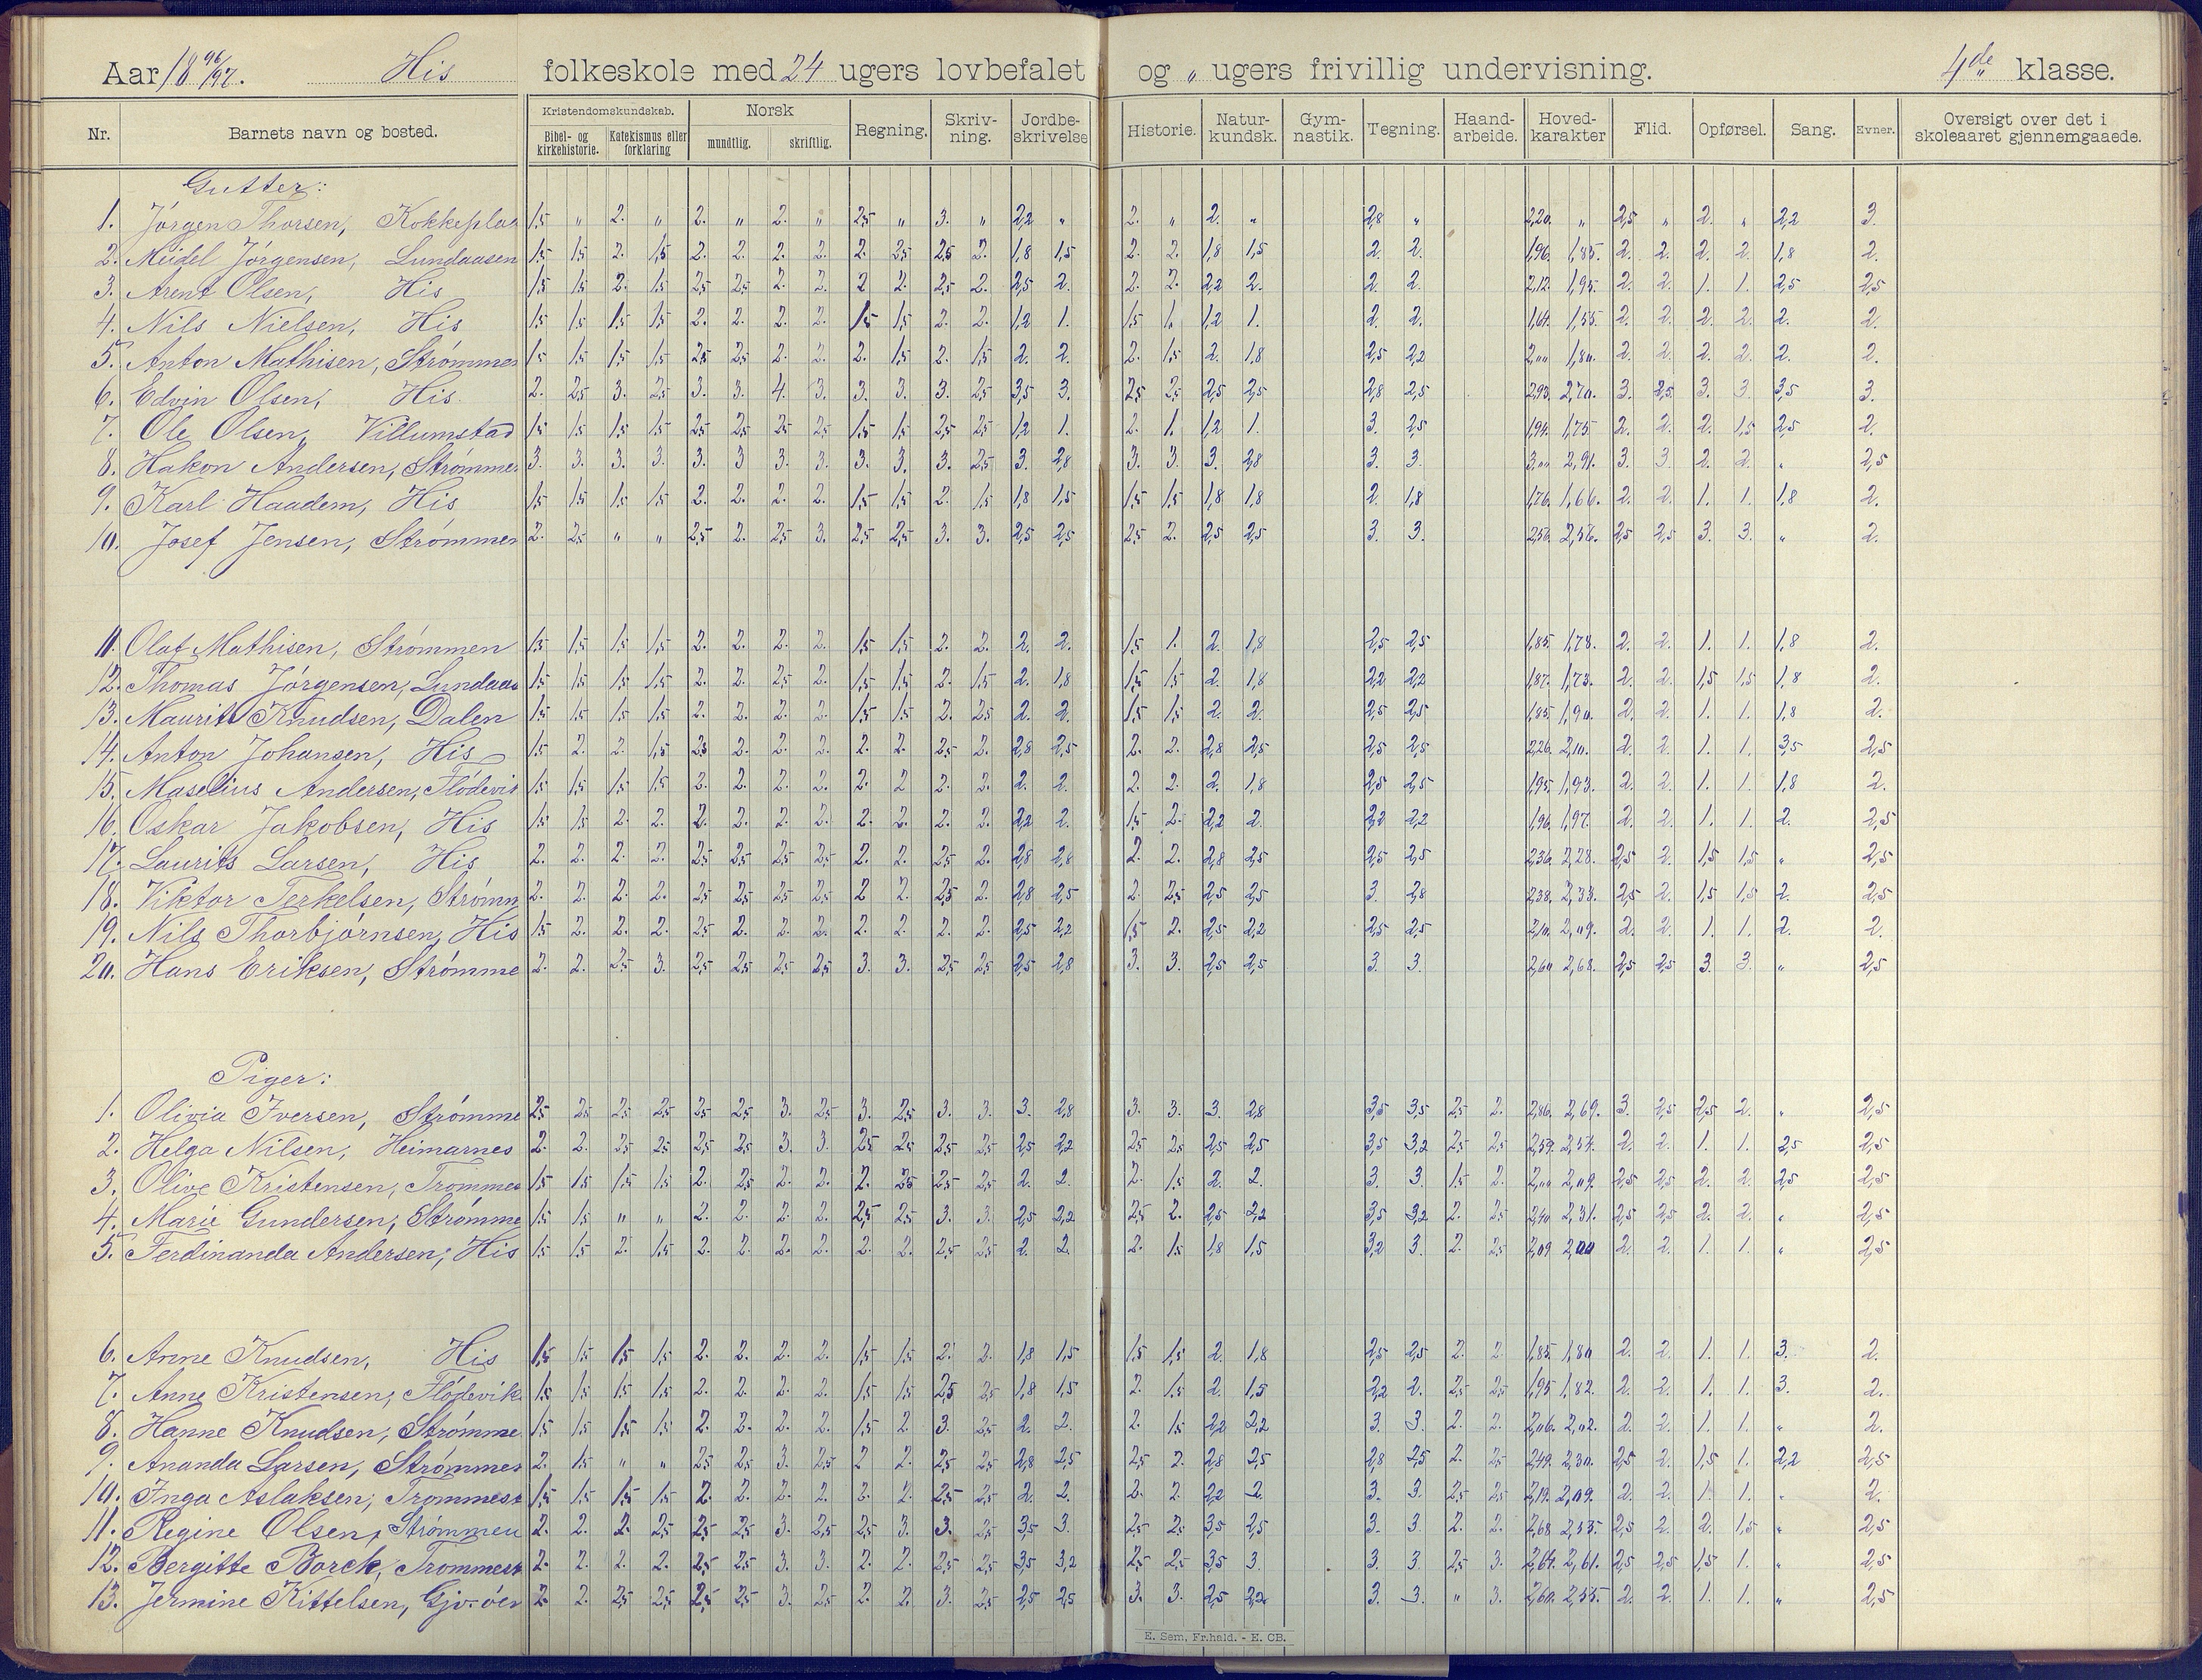 Aar 1896/97. His folkeskole med 24 ugers lovbefalet og „ ugers frivillig undervisning. 4de klasse.
Nr. Barnets navn og bosted. Kristendomskundskab. Bibel- og kirkehistorie. Katekismus eller forklaring Norsk mundtlig. skriftlig. Regning. Skriv-ning. Jordbe-skrivelse Historie. Natur-kundsk. Gym-nastik. Tegning. Haand-arbeide. Hoved-karakter Flid. Opførsel. Sang. Evner. Oversigt over det i skoleaaret gjennemgaaede.
Gutter:
1. Jørgen Thorsen, Kokkeplas 1,5 „ 2. „ 2. „ 2. „ 2,5 „ 3. „ 2,2 „ 2. „ 2. „ 2,8 „ 2,20. „ 2,5 „ 2. „ 2,2 3.
2. Meidel Jørgensen, Lundaasen 1,5 1,5 2. 1,5 2. 2. 2. 2. 2. 2,5 2,5 2. 1,8 1,5 2. 2. 1,8 1,5 2. 2. 1,96. 1,85. 2. 2. 2. 2. 1,8 2.
3. Arent Olsen, His 1,5 1,5 2. 1,5 2,5 2,5 2. 2. 2 2. 2,5 2. 2,5 2. 2. 2. 2,2 2. 2. 2. 2,12. 1,95. 2. 2. 1. 1. 2,5 2,5
4. Nils Nielsen, His 1,5 1,5 1,5 1,5 2. 2. 2. 2. 1,5 1,5 2. 2. 1,2 1. 1,5 1. 1,2 1. 2. 2. 1,64. 1,55. 2. 2. 2. 2. 2. 2.
5. Anton Mathisen, Strømmen 1,5 1,5 1,5 1,5 2,5 2,5 2. 2. 2. 1,5 2. 1,5 2. 2. 2. 1,5 2. 1,8 2,5 2,2 2,00 1,80. 2. 2. 2. 2. 2. 2.
6. Edvin Olsen, His 2. 2,5 3. 2,5 3. 3. 4. 3. 3. 3. 3. 2,5 3,5 3. 2,5 2,5 2,5 2,5 2,8 2,5 2,93. 2,70. 3. 2,5. 3. 3 3,5 3.
7. Ole Olsen, Villumstad 1,5 1,5 1,5 1,5 2,5 2,5 2,5 2,5 1,5 1,5 2,5 2,5 1,2 1. 2. 1. 1,2 1. 3. 2,5 1,94. 1,75. 2. 2. 2. 1,5 2,5 2.
8. Hakon Andersen, Strømmen 3. 3. 3. 3. 3. 3 3. 3. 3. 3. 3. 2,5 3. 2,8 3. 3. 3. 2,8 3. 3. 3,00 2,91. 3. 3. 2. 2. „ 2,5
9. Karl Haadem, His 1,5 1,5 1,5 1,5 2. 2. 2. 2. 1,5 1,5 2. 1,5 1,8 1,5 1,5 1,5 1,8 1,8 2. 1,8 1,76. 1,66. 2. 2. 1. 1. 1,8 2.
10. Josef Jensen, Strømmen 2. 2,5 „ „ 2,5 2. 2,5 3. 2,5 2,5 3. 3. 2,5 2,5 2,5 2. 2,5 2,5 3. 3. 2,56. 2,56. 2,5 2,5 3. 3. „ 2.
11. Olaf Mathisen, Strømmen 1,5 1,5 1,5 1,5 2. 2. 2. 2. 1,5 1,5 2. 2. 2. 2. 1,5 1. 2. 1,8 2,5 2,5 1,85. 1,78. 2. 2. 1. 1. 1,8 2.
12. Thomas Jørgensen, Lundaas 1,5 1,5 1,5 1,5 2. 2. 2,5 2. 1,5 1,5 2. 1,5 2. 1,8 1,5 1,5 2. 1,8 2,2 2,2 1,87. 1,73. 2. 2. 1,5 1,5 1,8 2.
13. Maurits Knudsen, Dalen 1,5 1,5 1,5 1,5 2. 2. 2. 2. 1,5 1,5 2. 2,5 2. 2. 1,5 1,5 2. 2. 2,5 2,5 1,85. 1,90. 2. 2. 1. 1. 1,8 2.
14. Anton Johansen, His 1,5 2. 2. 1,5 2,5 2. 2. 2. 2. 2. 2,5 2. 2,8 2,5 2. 2. 2,8 2,5 2,5 2,5 2,26. 2,10. 2. 2. 1. 1. 3,5 2,5
15. Maselius Andersen, Flødevik 1,5 1,5 1,5 1,5 2. 2. 2. 2. 2. 2 2. 2. 2. 2. 2. 2. 2. 1,8 2,5 2,5 1,95. 1,93. 2. 2. 1. 1. 1,8 2.
16. Oskar Jakobsen, His 1,5 1,5 2. 2. 2. 2. 2. 2. 2. 2. 2. 2. 2,2 2. 1,5 2. 2,2 2. 2,2 2,2 1,96. 1,97. 2. 2. 1. 1. 2. 2,5
17. Laurits Larsen, His 2. 2. 2. 2. 2,5 2,5 2,5 2,5 2. 2. 2,5 2. 2,8 2,8 2. 2. 2,8 2,5 2,5 2,5 2,36. 2,28. 2,5 2. 1,5 1,5 „ 2,5
18. Viktor Terkelsen, Strømm 2. 2. 2. 2. 2,5 2,5 2,5 2,5 2 2. 2,5 2. 2,8 2,5 2. 2,5 2,5 2,5 3. 2,8 2,38. 2,33. 2,5 2. 1,5 1,5 2. 2,5
19. Nils Thorbjørnsen, His 1,5 2. 2. 2. 2,5 2. 2. 2. 2. 2. 2. 2. 2,5 2,2 1,5 2. 2,5 2,2 2,5 2,5 2,10. 2,09. 2. 2. 1. 1. 2. 2.
20. Hans Eriksen, Strømme 2. 2. 2,5 3. 2,5 2,5 2,5 2,5 3. 3. 2,5 2,5 2,5 2,8 3. 3. 2,5 2,5 3. 3. 2,60 2,68. 2,5 2,5 3. 3. „ 2,5
Piger:
1. Olivia Iversen, Strømme 2,5 2,5 2,5 2,5 2,5 2,5 3. 2,5 3. 2,5 3. 3. 3. 2,8 3. 3. 3. 2,8 3,5 3,5 2,5 2. 2,86. 2,69. 3. 2,5 2,5 2. „ 2,5
2. Helga Nilsen, Heimarnes 2. 2. 2,5 2,5 2,5 2,5 3. 3. 2,5 2,5 2,5 2,5 2,5 2,2 2,5 2,5 2,5 2,5 3,5 3,2 2,5 2,5 2,59. 2,54. 2. 2. 1. 1. 2,5 2,5
3. Olive Kristensen, Trommes 1,5 1,5 1,5 1,5 2. 2,5 2. 2. 2. 2,5 2,5 2,5 2. 2. 2. 1,5 2. 2. 3. 3. 1,5 2. 2,00 2,09. 2,5 2,5 2. 2. 2,5 2,5
4. Marie Gundersen, Strømme 1,5 1,5 „ „ 2. 2. 2. 2. 2,5 2,5 3. 3. 2,5 2,2 2,5 2. 2,5 2,2 3,5 3,2 2. 2,5 2,40 2,31. 2,5 2,5 2. 2. „ 2,5
5. Ferdinanda Andersen, His 1,5 1,5 2. 1,5 2. 2. 2. 2. 2. 2. 2,5 2,5 2. 2. 2. 1,5 1,8 1,5 3,2 3. 2. 2,5 2,09 2,00 2. 2. 1. 1. „ 2,5
6. Anne Knudsen, His 1,5 1,5 1,5 1,5 2. 2. 2. 2. 1,5 1,5 2. 2. 1,8 1,5 1,5 1,5 2. 1,8 2,5 2,5 2. 2. 1,85. 1,80 2. 2. 1. 1. 3. 2.
7. Anne Kristensen, Flødevik 1,5 1,5 1,5 1,5 2. 2. 2. 2. 1,5 1,5 2,5 2,5 1,8 1,5 2. 1,5 2. 1,5 2,2 2. 2,5 2,5 1,95 1,82. 2. 2. 1. 1. 3. 2.
8. Hanne Knudsen, Strømme 1,5 1,5 1,5 1,5 2. 2. 2. 2. 1,5 2 3. 2,5 2. 2. 2. 1,5 2,2 2,2 3. 3 2. 2. 2,06. 2,02. 2. 2. 1. 1. „ 2.
9. Ananda Larsen, Strømmen 2. 1,5 „ „ 2,5 2,5 3. 2,5 2 2. 2,5 2,5 2,8 2,5 2,5 2. 2,8 2,5 2,8 2,5 2. 2,5 2,49. 2,30. 2,5 2. 1,5 1. 2,2 2,5
10. Inga Aslaksen, Trommest 1,5 1,5 1,5 1,5 2. 2. 2. 2. 2. 2. 2,5 2,5 2. 2. 2. 2. 2,2 2. 3. 3. 2,5 2,5 2,19. 2,09. 2. 2. 1. 1. „ 2.
11. Regine Olsen, Strømmen 2. 2. 2. 2,5 2,5 2,5 3. 2,5 2,5 3. 3. 2,5 3,5 3. 2,5 2,5 3,5 2,5 3. 3. 2. 2. 2,68 2,55. 2,5 2. 2. 1,5 „ 2,5
12. Bergitte Borch, Trommest 2. 2. 2. 2. 2,5 2,5 3. 3. 2. 2. 2,5 2,5 3,5 3,2 2,5 2,5 3,5 3. 3. 3. 2,5 3. 2,64. 2,61. 2,5 2,5 1,5 1. „ 2,5
13. Jermine Kittelsen, 2. 2. 2,5 2,5 2,5 2,5 3. 2,5 2. 2. 3. 2,5 2,5 2,5 3. 3. 2,5 2,2 3. 3. „ 3. 2,60. 2,55. 2. 2. 1. 1. „ 2,5
E. Sem, Fr.hald. - E. CB.